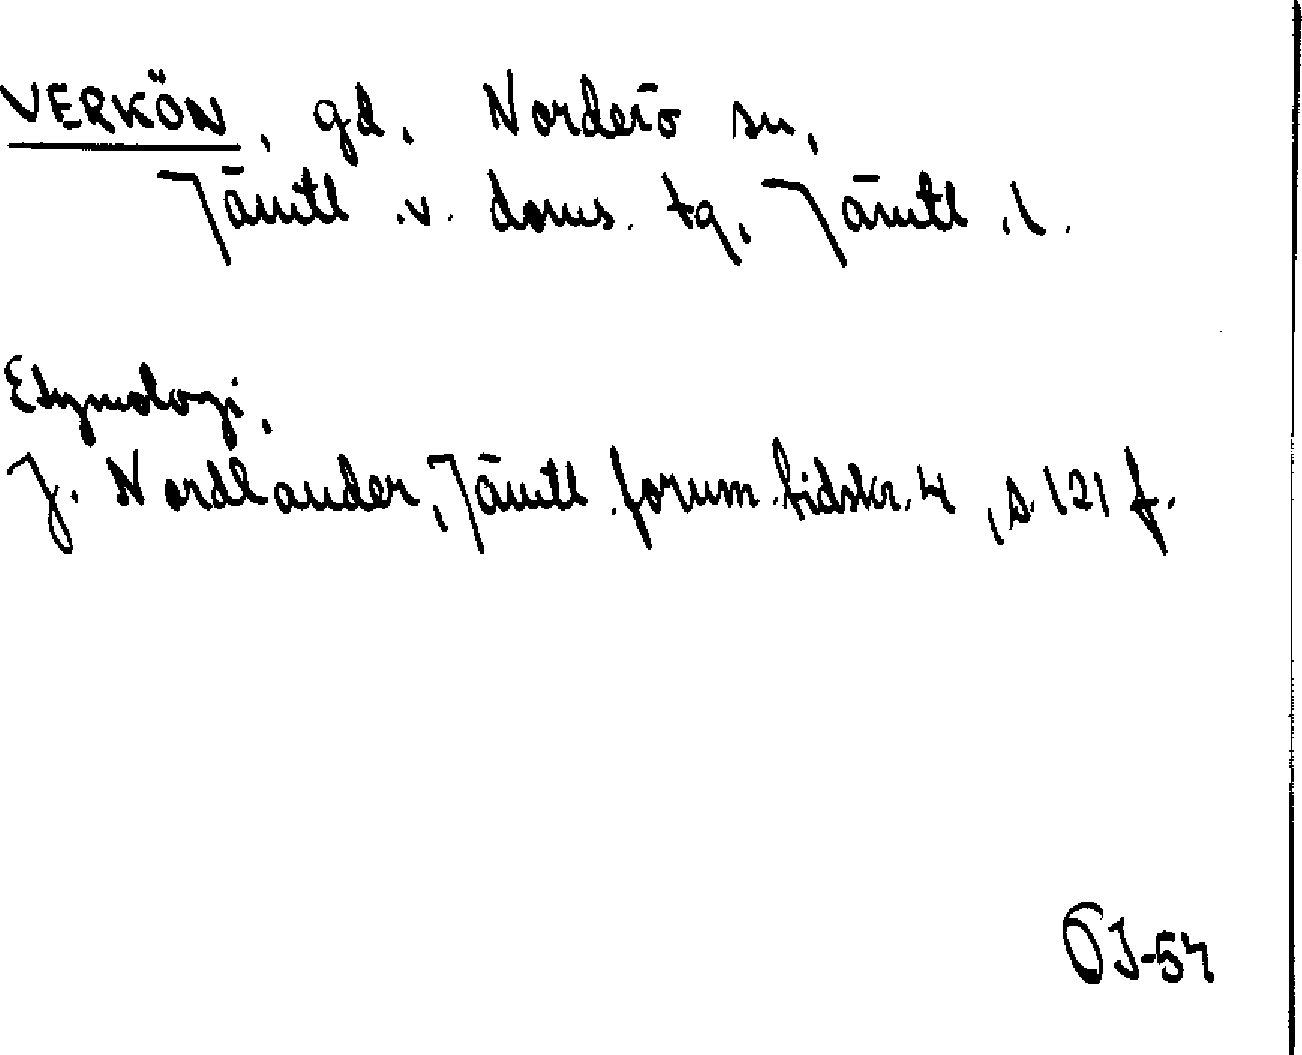 VERKÖN, gd. Norderö sn,
Jämtl.v. doms. tg, Jämtl.l.
Etymologi,
J. Nordlander, Jämtl. fornm. tidskr. 4, s. 121 f.
ÖJ-54